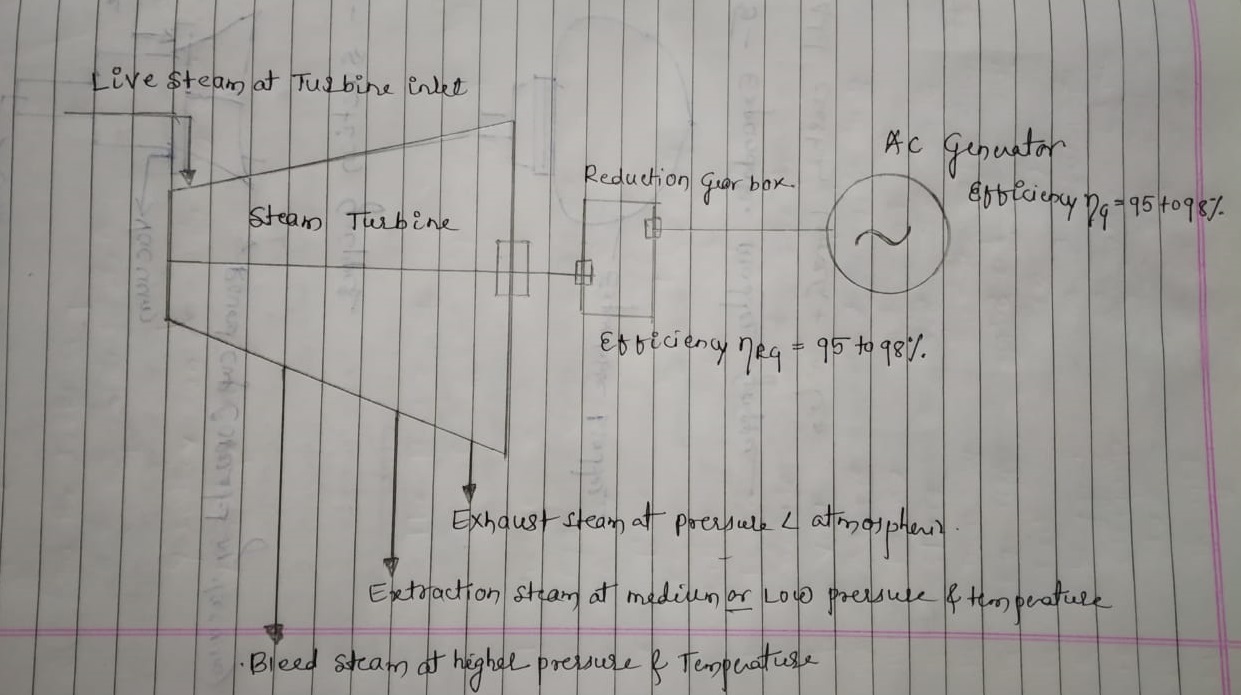 Live steam at Turbine inlet
AC Generator
Efficiency ηg = 95 to 98%
Reduction Gear box.
Steam Turbine
Efficiency ηRg = 95 to 98%.
Exhaust steam at pressure < atmospheric.
Extraction steam at medium or Low pressure & temperature
Bleed steam at higher pressure & Temperature